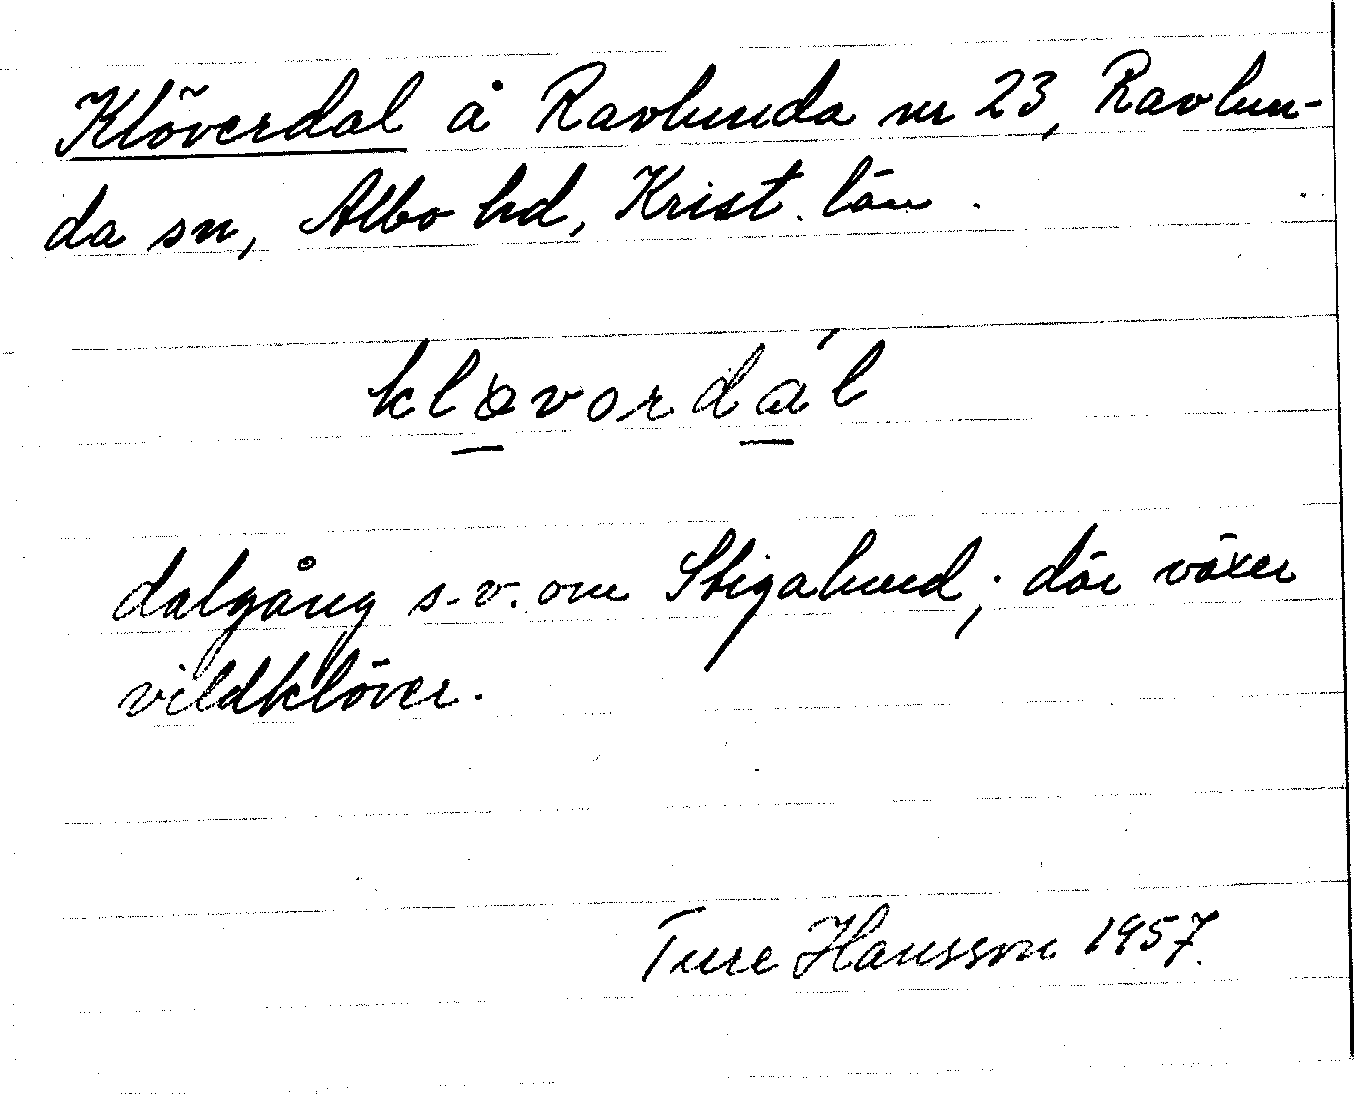 Klöverdal å Ravlunda nr 23, Ravlun-
da sn, Albo hd, Krist. län.
kløvordál
dalgång s.v. om Stigalund; där växer
vildklöver.
Ture Hansson 1957.